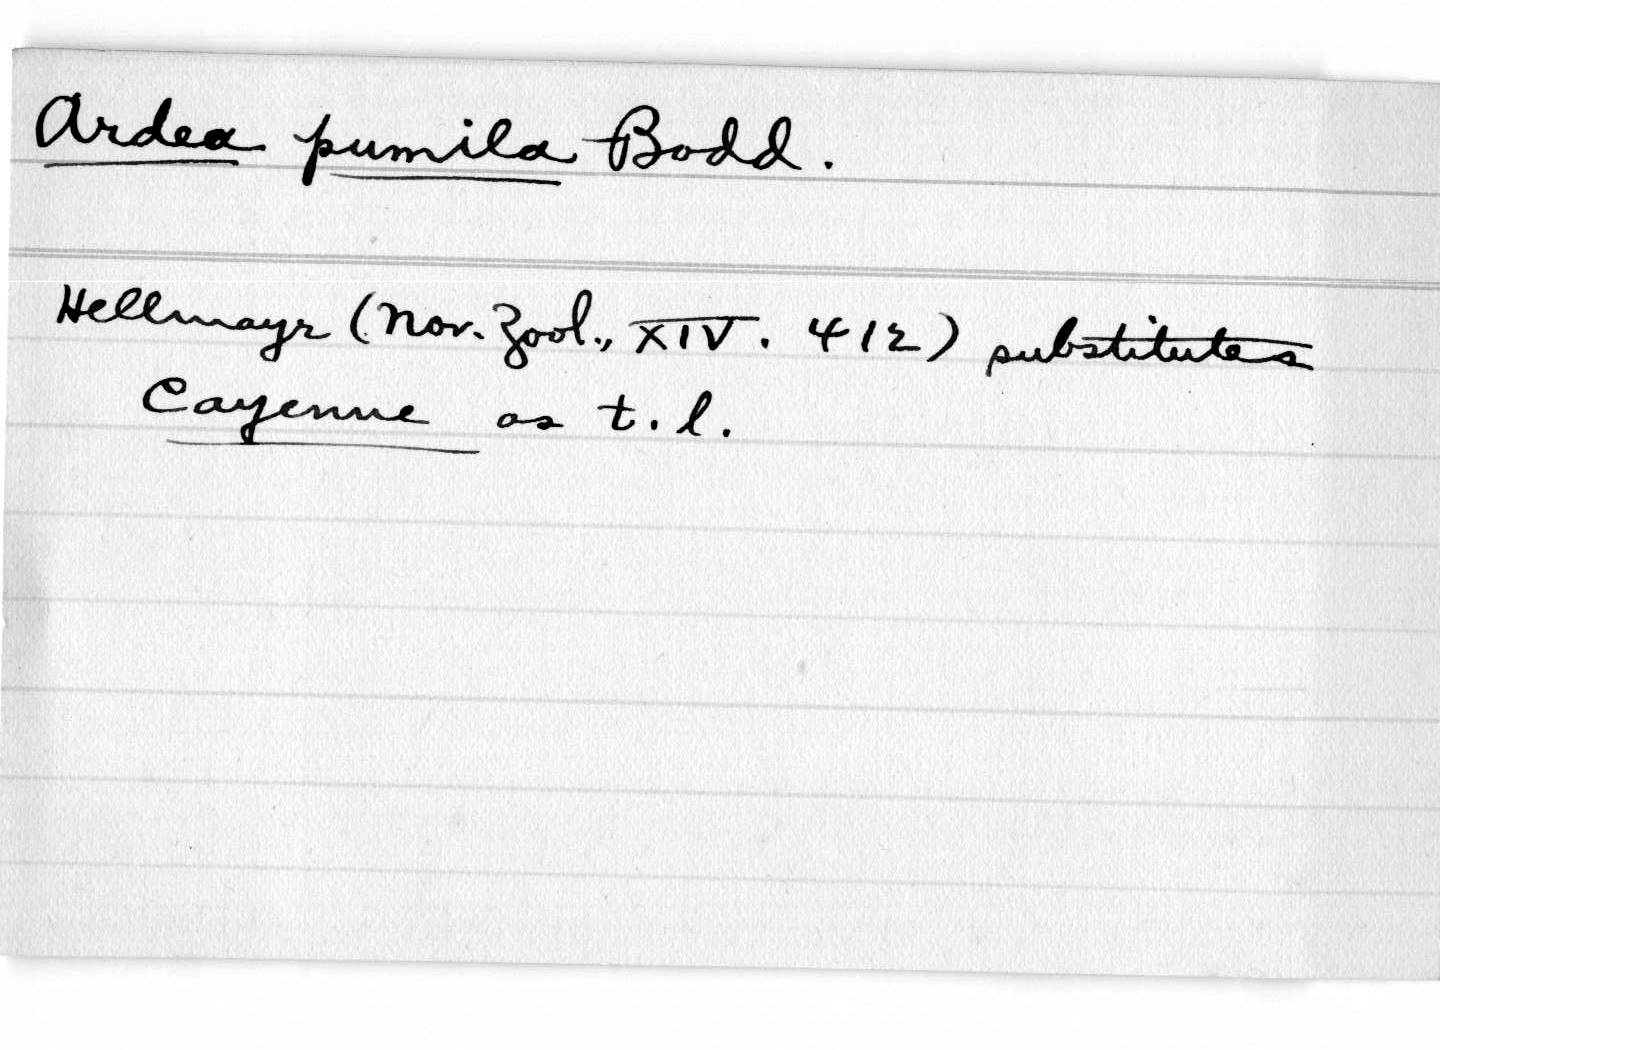 Ardea pumila Bodd.
Hellmayr (Nov. Zool., XIV. 412) substitutes
Cayenne as t.l.